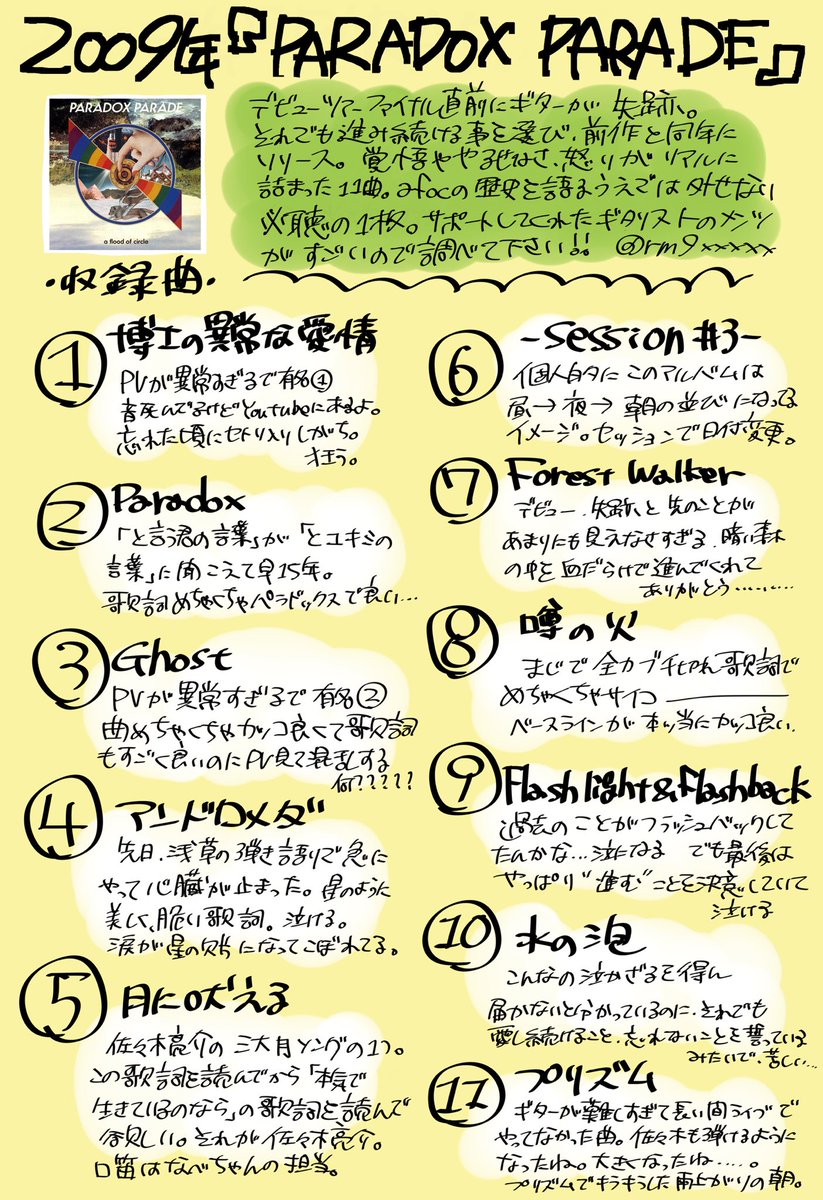 2009年『PARADOX PARADE』
PARADOX PARADE
a flood of circle
デビューツアーファイナル直前にギターが失踪。
それでも進み続ける事を選び、前作と同年に
リリース。覚悟ややるせなさ、怒りがリアルに
詰まった11曲。afocの歴史を語るうえでは外せない
必聴の1枚。サポートしてくれたギタリストのメンツ
がすごいので調べて下さい!! @rm9xxxxx
・収録曲・
① 博士の異常な愛情
PVが異常すぎるで有名①
音死んでるけどYoutubeにあるよ。
忘れた頃にセトリ入りしがち。
狂う。
② Paradox
「と言う君の言葉」が「とユキミの
言葉」に聞こえて早15年。
歌詞めちゃくちゃパラドックスで良い…
③ Ghost
PVが異常すぎるで有名②
曲めちゃくちゃカッコ良くて歌詞
もすごく良いのにPV見て混乱する
何?????
④ アンドロメダ
先日、浅草の弾き語りで急に
やって心臓が止まった。星のように
美しく、脆い歌詞。泣ける。
涙が星の欠片になってこぼれてる。
⑤ 月に吠える
佐々木亮介の三大月ソングの1つ。
この歌詞を読んでから「本気で
生きているのなら」の歌詞を読んで
欲しい。それが佐々木亮介。
口笛はなべちゃんの担当。
⑥ -Session #3-
個人的にこのアルバムは
昼→夜→朝の並びになってる
イメージ。セッションで日付変更。
⑦ Forest Walker
デビュー、失踪と先のことが
あまりにも見えなさすぎる、暗い森
の中を血だらけで進んでくれて
ありがとう………
⑧ 噂の火
まじで全カブチギれ歌詞で
めちゃくちゃサイコー
ベースラインが本当にカッコ良い。
⑨ Flash light & Flashback
過去のことがフラッシュバックして
たんかな…泣になる でも最後は
やっぱり"進む"ことを決意していて
泣ける
⑩ 水の泡
こんなの泣かざるを得ん
届かないと分かっているのに、それでも
愛し続けること、忘れないことを誓っている
みたいで、苦しい…
⑪ プリズム
ギターが難しすぎて長い間ライブで
やってなかった曲。佐々木も弾けるように
なったね。大きくなったね……。
プリズムでキラキラした雨上がりの朝。